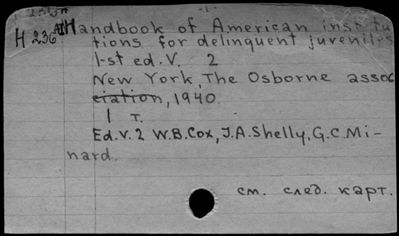 -1-
H 236
Handbook of American institu
tions for delinquent juveniles
1-st ed. V. 2
New York, The Osborne assoc
ciation, 1940.
1 т.
Ed. v. 2 W.B. Cox, J.A. Shelly, G.C. Mi-
nard.
см. след. карт.